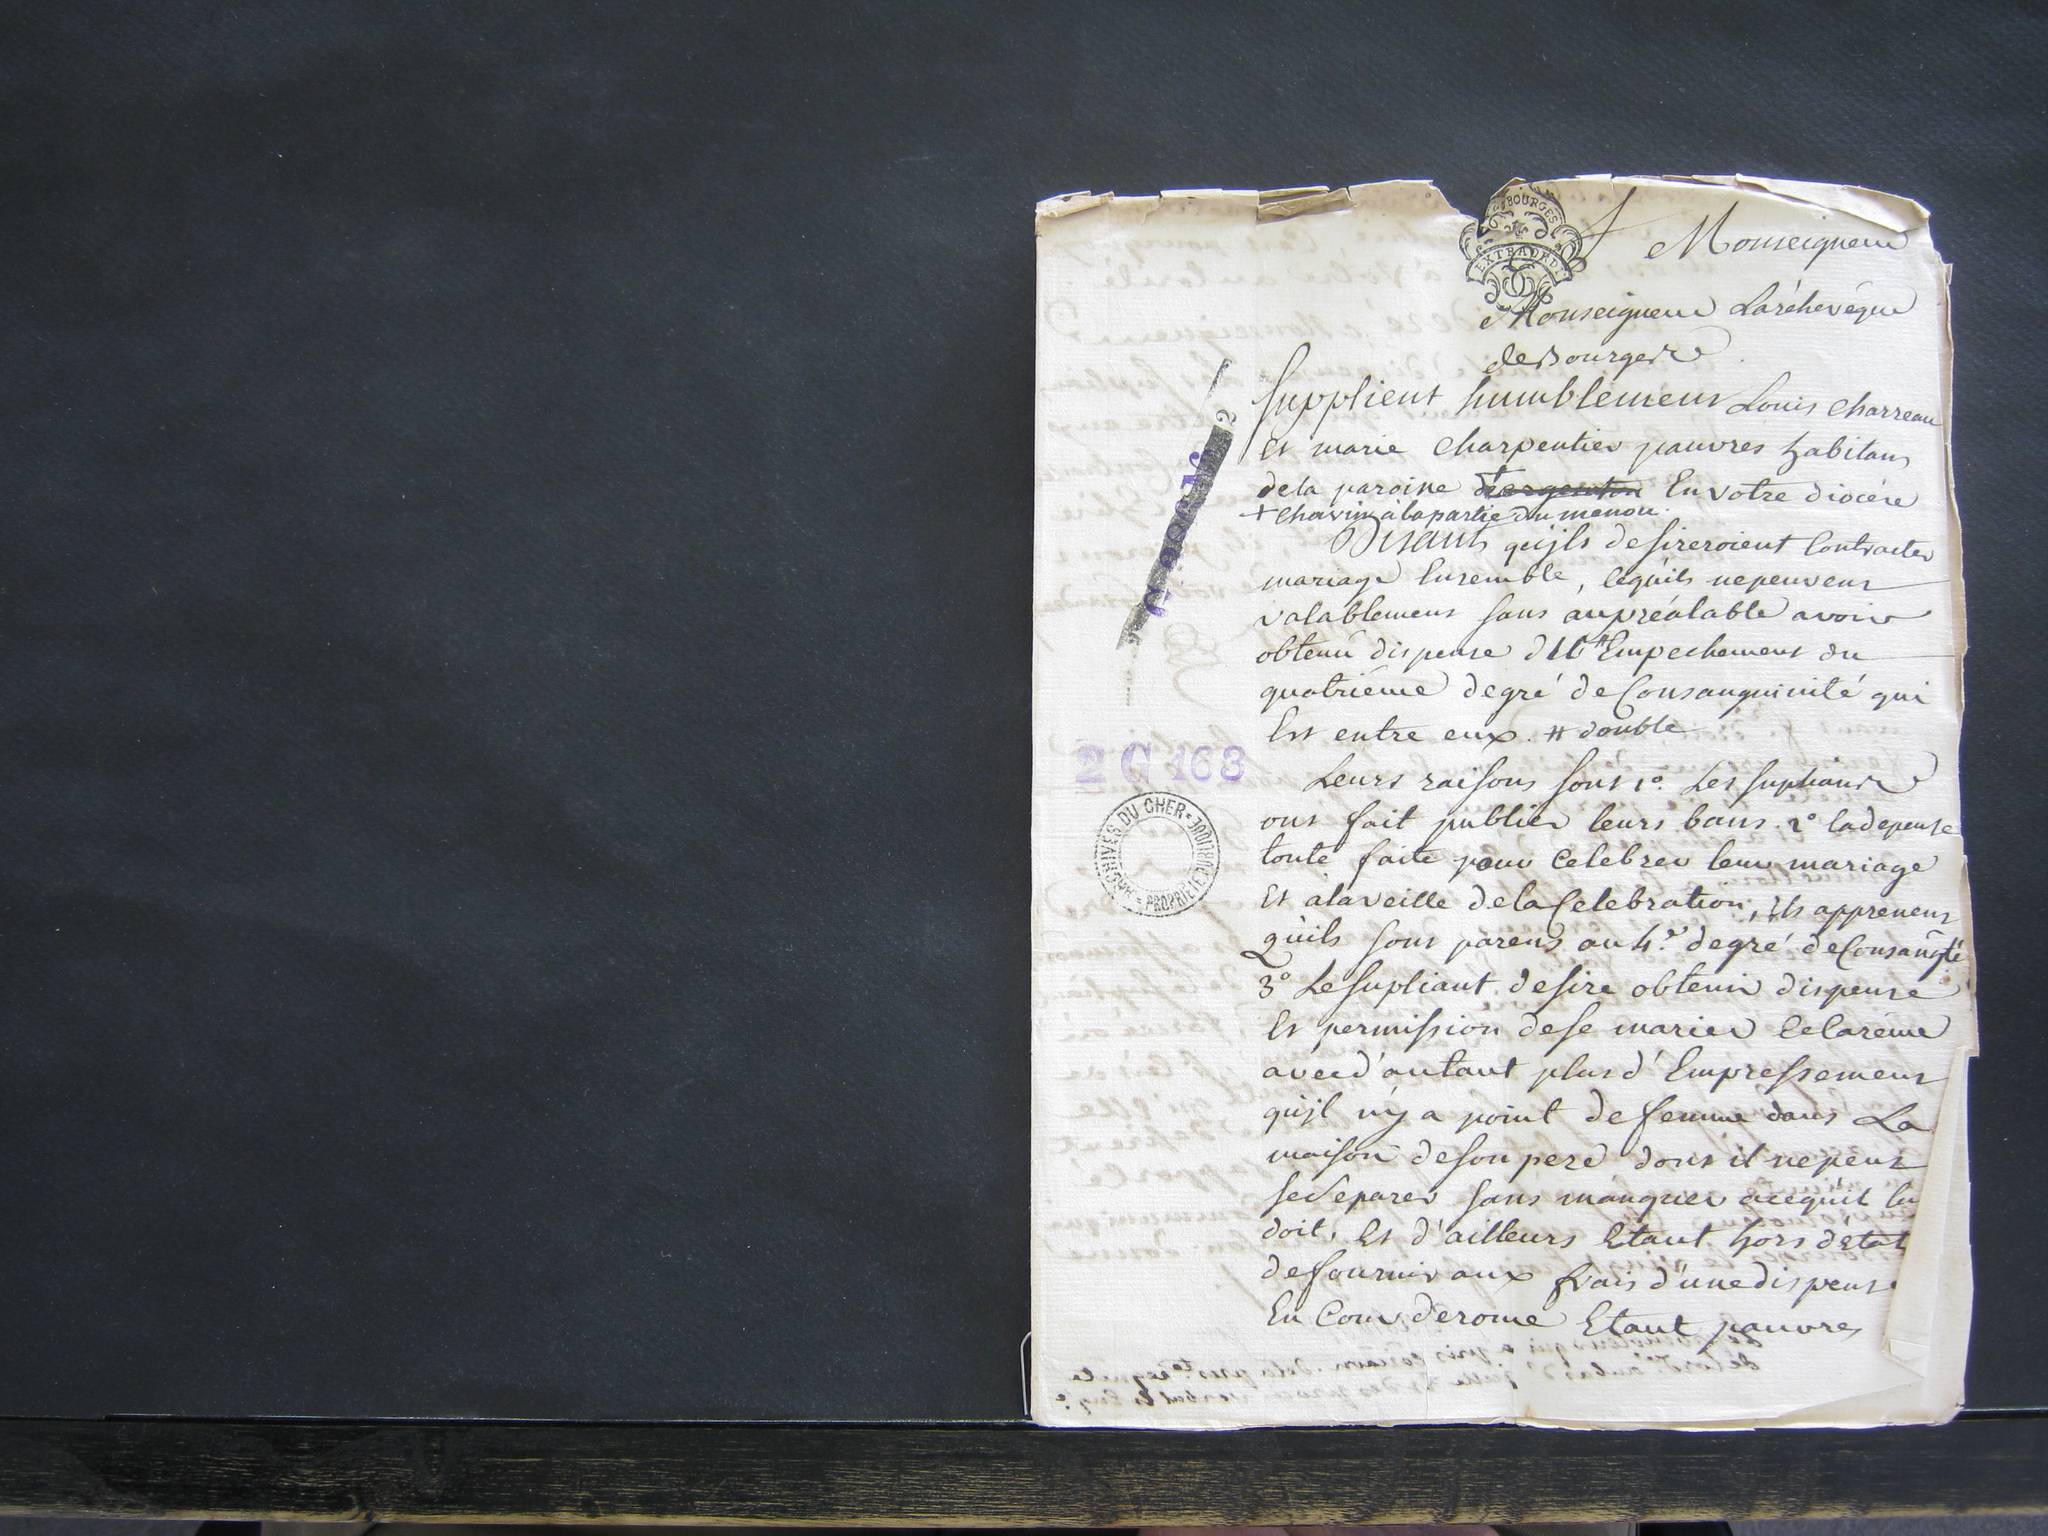 BOURGES
EXTRAORD
A Monseigneur
Monseigneur Larchevêque
de Bourges
Supplient humblement Louis Charreau
Et marie Charpentier pauvres habitans
dela paroisse d'argenton En votre diocèse
+ chavin à la partie du menou.
Disants qu'jls desireroient Contracter
mariage Ensemble, cequils nepeuvent
valablement sans aupréalable avoir
obtenu dispense d # Empechement du
quatriéme degré de Consanguinité qui
Est entre eux. # double
Leurs raisons sont 1º. Les supliants
ont fait publier leurs bans. 2º ladepense
toute faite pour Celebrer leur mariage
Et alaveille de la Celebration, ils apprenent
Qu'ils sont parens au 4.e degré de Consangté
3º Le supliant desire obtenir dispense
Et permission dese marier Cecarême
avec d'autant plus d'Empressement
qu'jl n'y a point de femme dans La
maison deson pere dont il nepeut
seséparer sans manquer acequil lui
doit, Et d'ailleurs Etant hors d'état
defournir aux frais d'unedispense
En Cour derome Etant pauvres
2 G 168
ARCHIVES DU CHER - PROPRIÉTÉ PUBLIQUE